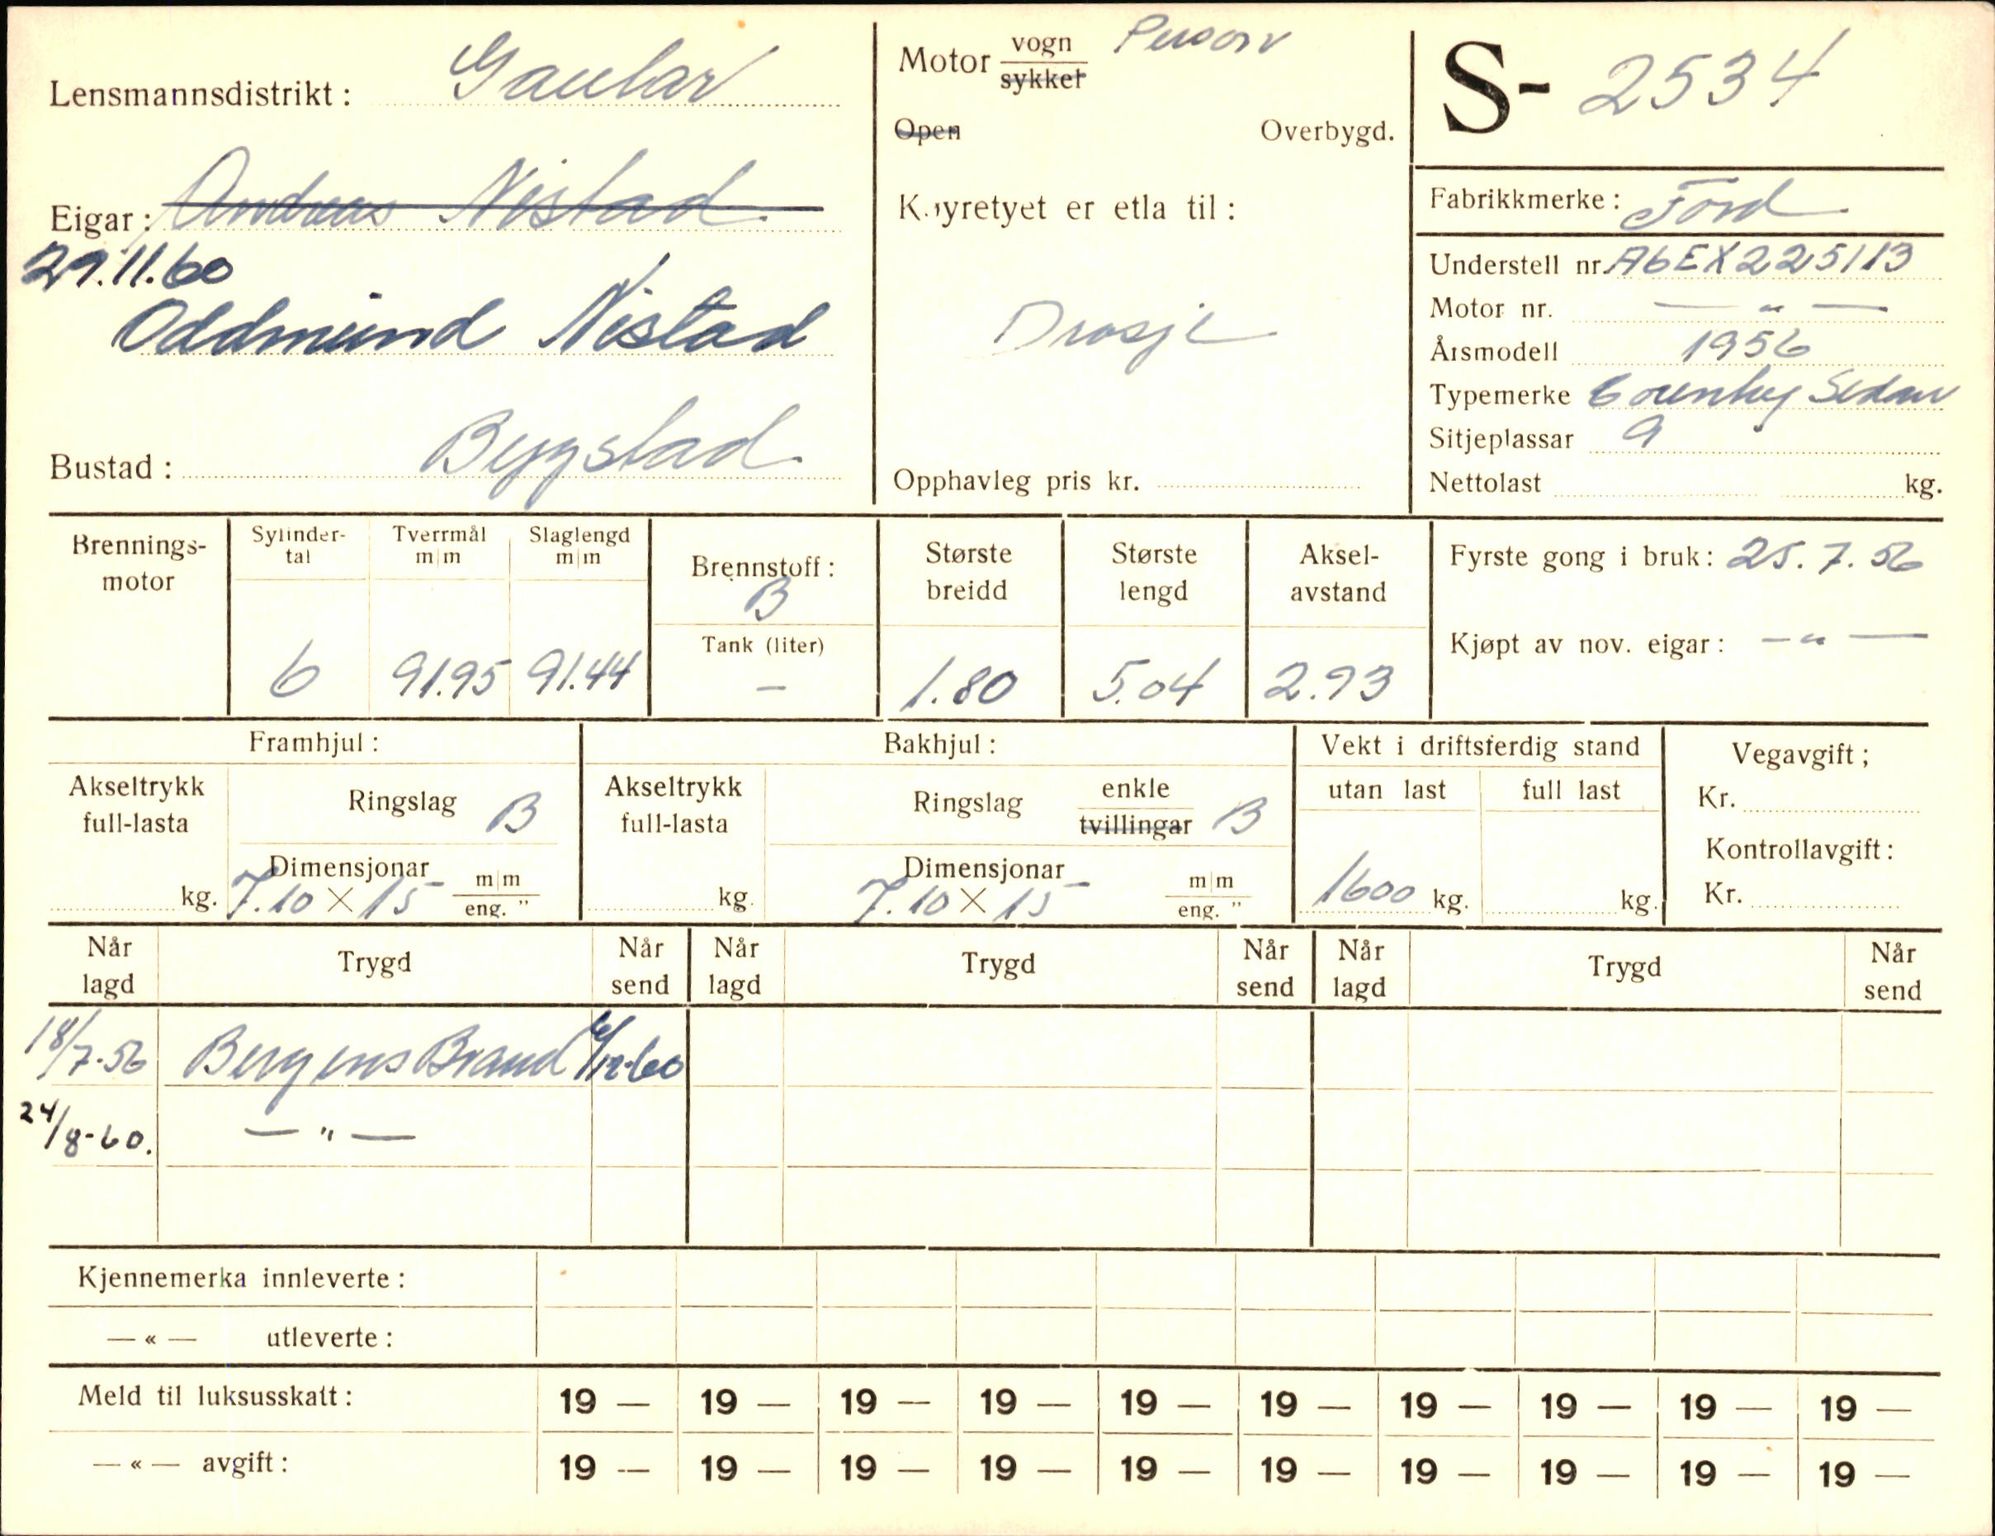 Lensmannsdistrikt: Gaular
Eigar: Andreas Nistad
29.11.60
Oddmund Nistad
Bustad: Bygstad
Motor vogn Person
sykkel
Open Overbygd.
Køyretyet er etla til:
Drosje
Opphavleg pris kr.
S- 2534
Fabrikkmerke: Ford
Understell nr. A6EX225113
Motor nr. — " —
Årsmodell 1956
Typemerke Country Sedan
Sitjeplassar 9
Nettolast kg.
Brennings-
motor
Sylinder-
tal
6
Tverrmål
m|m
91.95
Slaglengd
m|m
91.44
Brennstoff:
B
Tank (liter)
—
Største
breidd
1.80
Største
lengd
5.04
Aksel-
avstand
2.93
Fyrste gong i bruk: 25.7.56
Kjøpt av nov. eigar: — " —
Framhjul:
Akseltrykk
full-lasta
kg.
Ringslag B
Dimensjonar
7.10 X 15 m|m
eng. "
Bakhjul:
Akseltrykk
full-lasta
kg
Ringslag enkle
tvillingar B
Dimensjonar
7.10 X 15 m|m
eng. "
Vekt i driftsferdig stand
utan last full last
1600 kg. kg.
Vegavgift;
Kr.
Kontrollavgift:
Kr.
Når
lagd Trygd Når
send Når
lagd Trygd Når
send Når
lagd Trygd Når
send
18/7-56 Bergens Brand /12-60
24/8-60. — " —
Kjennemerka innleverte:
— « — utleverte:
Meld til luksusskatt: 19 — 19 — 19 — 19 — 19 — 19 — 19 — 19 — 19 — 19 —
— « — avgift: 19 — 19 — 19 — 19 — 19 — 19 — 19 — 19 — 19 — 19 —